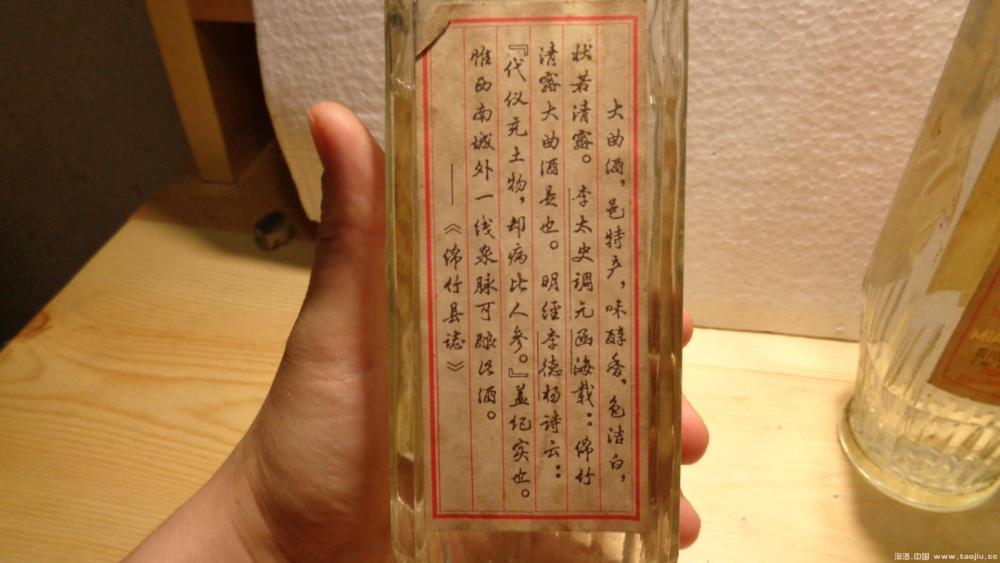 大曲酒，邑特产，味醇香，色洁白，
状若清露。李太史调元函海载：绵竹
清露大曲酒是也。明经李德杨诗云：
『代仪充土物，却病比人参。』盖纪实也。
惟西南城外一线泉脉可酿此酒。
——《绵竹县志》
淘酒.中国 www.taojiu.cc